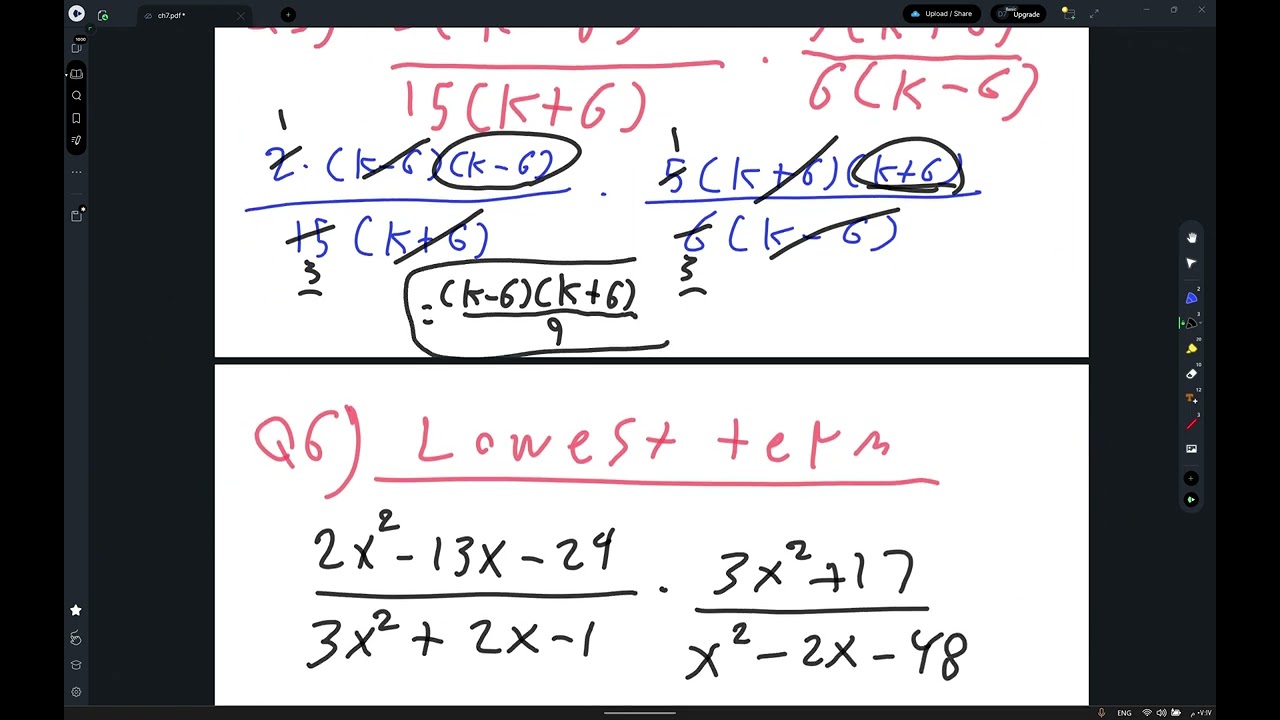 ch7.pdf *
Upload / Share
Basic
Upgrade
15(k+6) · 6(k-6)
1 1
2·(k-6)(k-6) · 5(k+6)(k+6)
15(k+6) 6(k-6)
3 3
= (k-6)(k+6)
9
Q6) Lowest term
2x² - 13x - 24 · 3x² + 17
3x² + 2x - 1 x² - 2x - 48
ENG